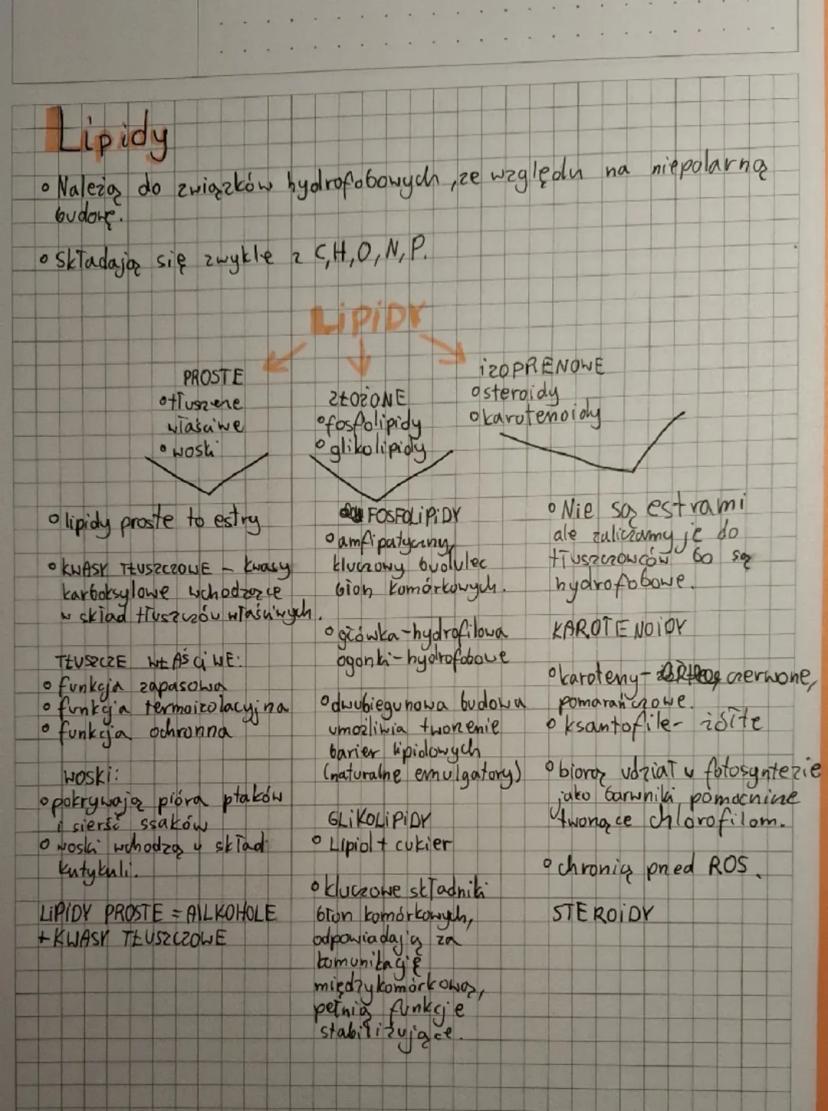 Lipidy
• Należą do związków hydrofobowych, ze względu na niepolarną
budowę.
• Składają się zwykle z C,H,O,N,P.
LIPIDY
PROSTE
• tłuszcze
właściwe
• woski
ZŁOŻONE
• fosfolipidy
• glikolipidy
IZOPRENOWE
• steroidy
• karotenoidy
• lipidy proste to estry
• KWASY TŁUSZCZOWE – kwasy
karboksylowe wchodzące
w skład tłuszczów właściwych.
TŁUSZCZE WŁAŚCIWE:
• funkcja zapasowa
• funkcja termoizolacyjna
• funkcja ochronna
WOSKI:
• pokrywają pióra ptaków
i sierść ssaków
• woski wchodzą w skład
kutykuli.
LIPIDY PROSTE = ALKOHOLE
+ KWASY TŁUSZCZOWE
FOSFOLIPIDY
• amfipatyczny,
kluczowy budulec
błon komórkowych.
• główka-hydrofilowa
ogonki-hydrofobowe
• dwubiegunowa budowa
umożliwia tworzenie
barier lipidowych
(naturalne emulgatory)
GLIKOLIPIDY
• Lipid + cukier
• kluczowe składniki
błon komórkowych,
odpowiadają za
komunikację
międzykomórkową,
pełnią funkcje
stabilizujące.
• Nie są estrami
ale zaliczamy je do
tłuszczowców bo są
hydrofobowe.
KAROTENOIDY
• karoteny- czerwone,
pomarańczowe.
• ksantofile- żółte
• biorą udział w fotosyntezie
jako barwniki pomocnicze
towarzyszące chlorofilom.
• chronią przed ROS.
STEROIDY